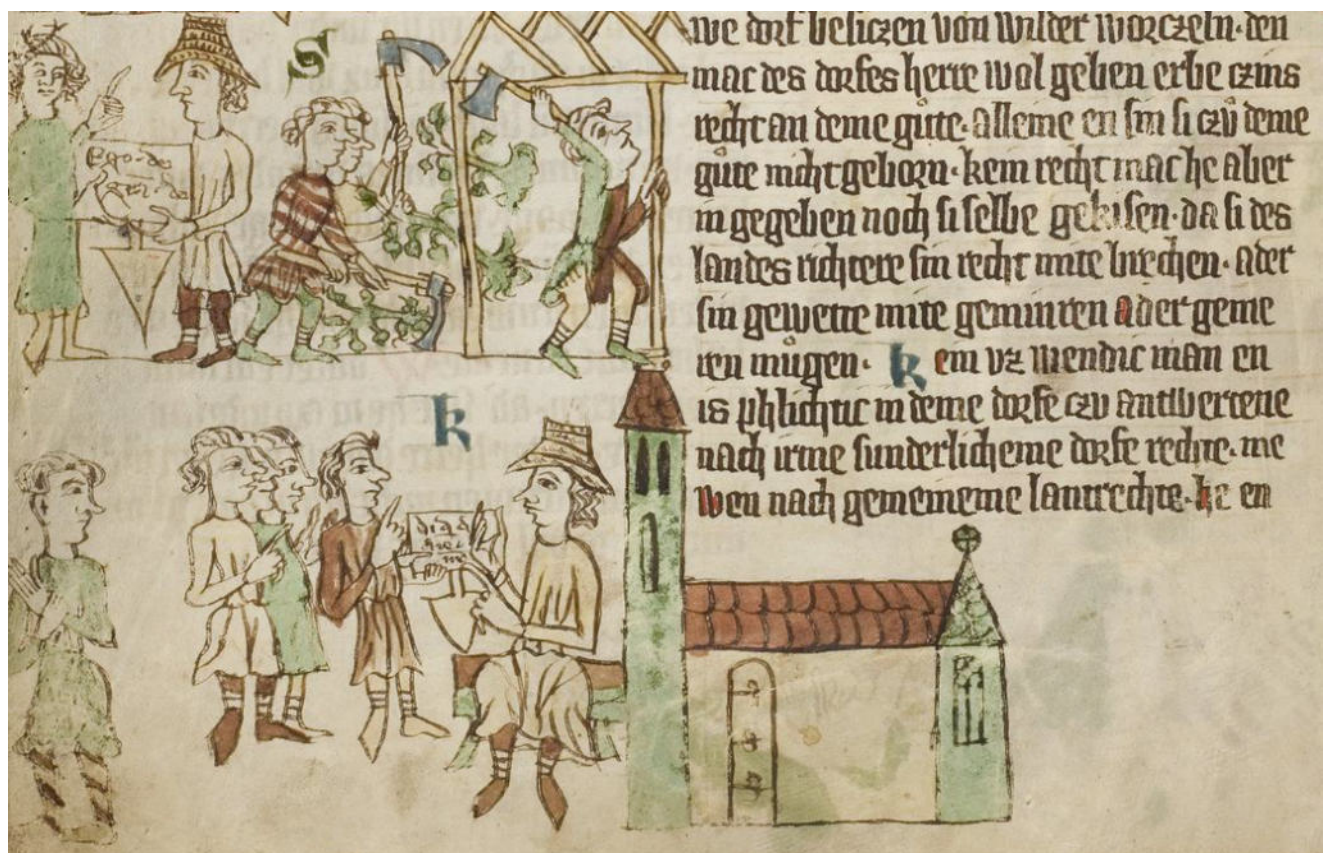 S
Ego · de
gra
K
we dorf besiczen von wilder worczeln · den
mac des dorfes herre wol geben erbe czins
recht an deme gůte · alleine en sin si czů deme
gůte nicht geborn · kein recht mac he aber
in gegeben noch si selbe gekisen · da si des
landes richtere sin recht mite brechen · ader
sin gewette mite geminren ader geme
ren můgen · Kein vz wendic man en
is phlichtic in deme dorfe czv antwertene
nach irme sunderlicheme dorfe rechte · me
wen nach gemeineme lantrechte · he en